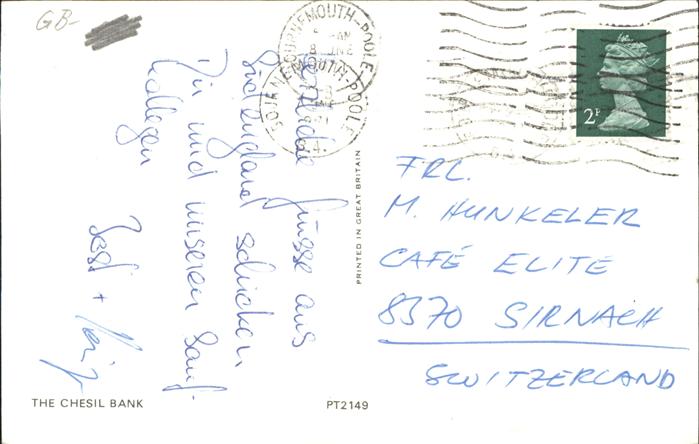 GB-
BOURNEMOUTH-POOLE
BOURNEMOUTH-POOLE
2P
Herzliche Grüsse aus
Südengland schicken
Dir und unseren Sauf-
kollegen
PRINTED IN GREAT BRITAIN
FRL.
M. HUNKELER
CAFÉ ELITE
8370 SIRNACH
SWITZERLAND
THE CHESIL BANK
PT2149